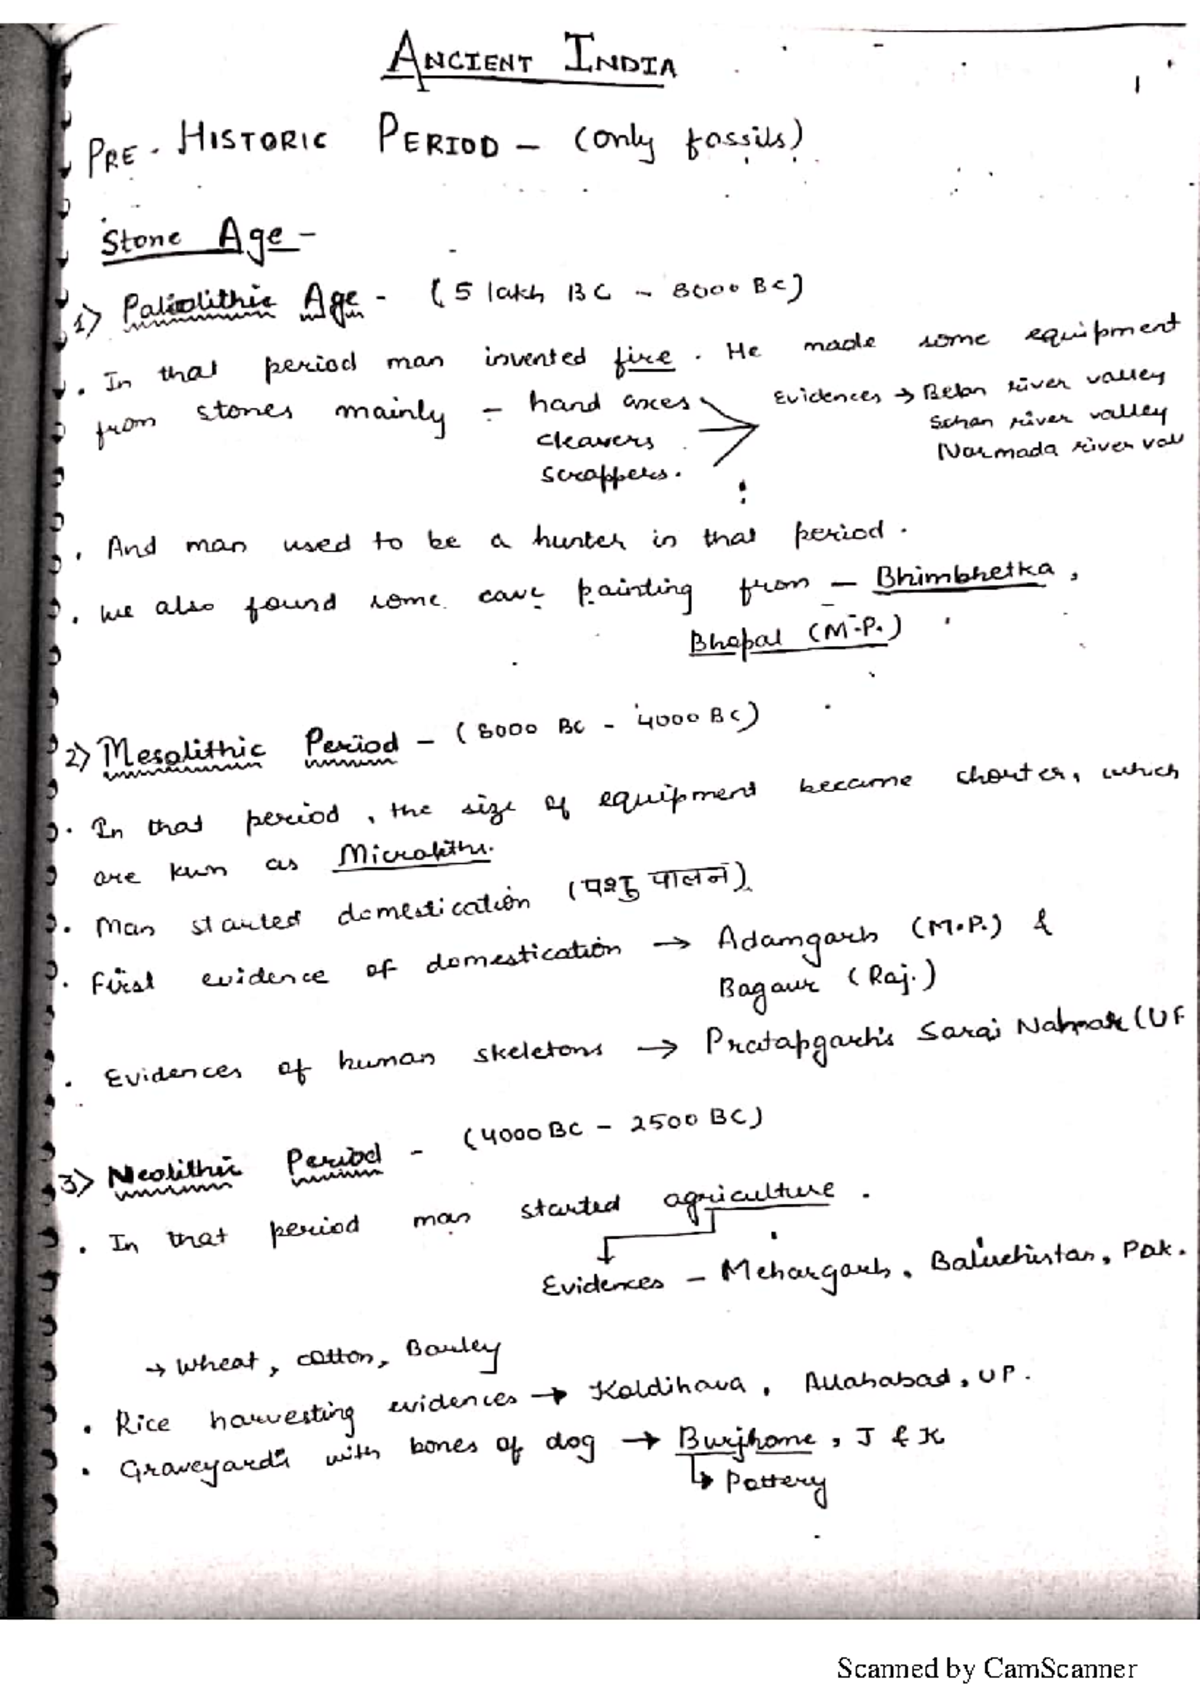 ANCIENT INDIA
1
PRE-HISTORIC PERIOD - (only fossils)
Stone Age -
1) Paliolithic Age - (5 lakh BC - 8000 BC)
. In that period man invented fire. He made some equipment
from stones mainly - hand axes
cleavers
scrappers.
Evidences → Belan river valley
Sohan river valley
Narmada river val
. And man used to be a hunter in that period.
. We also found some cave painting from - Bhimbhetka,
Bhopal (M.P.)
2) Mesolithic Period - (8000 BC - 4000 BC)
. In that period, the size of equipment became shorter, which
are kwn as Microliths.
. Man started domestication (पशु पालन)
. First evidence of domestication → Adamgarh (M.P.) &
Bagaur (Raj.)
. Evidences of human skeletons → Pratapgarh's Sarai Nahar (UP
3) Neolithic Period - (4000 BC - 2500 BC)
. In that period man started agriculture.
Evidences - Mehargarh, Baluchistan, Pak.
→ Wheat, cotton, Barley
. Rice harvesting evidences → Koldihava, Allahabad, UP.
. Graveyards with bones of dog → Burjhome, J & K
↳ Pottery
Scanned by CamScanner